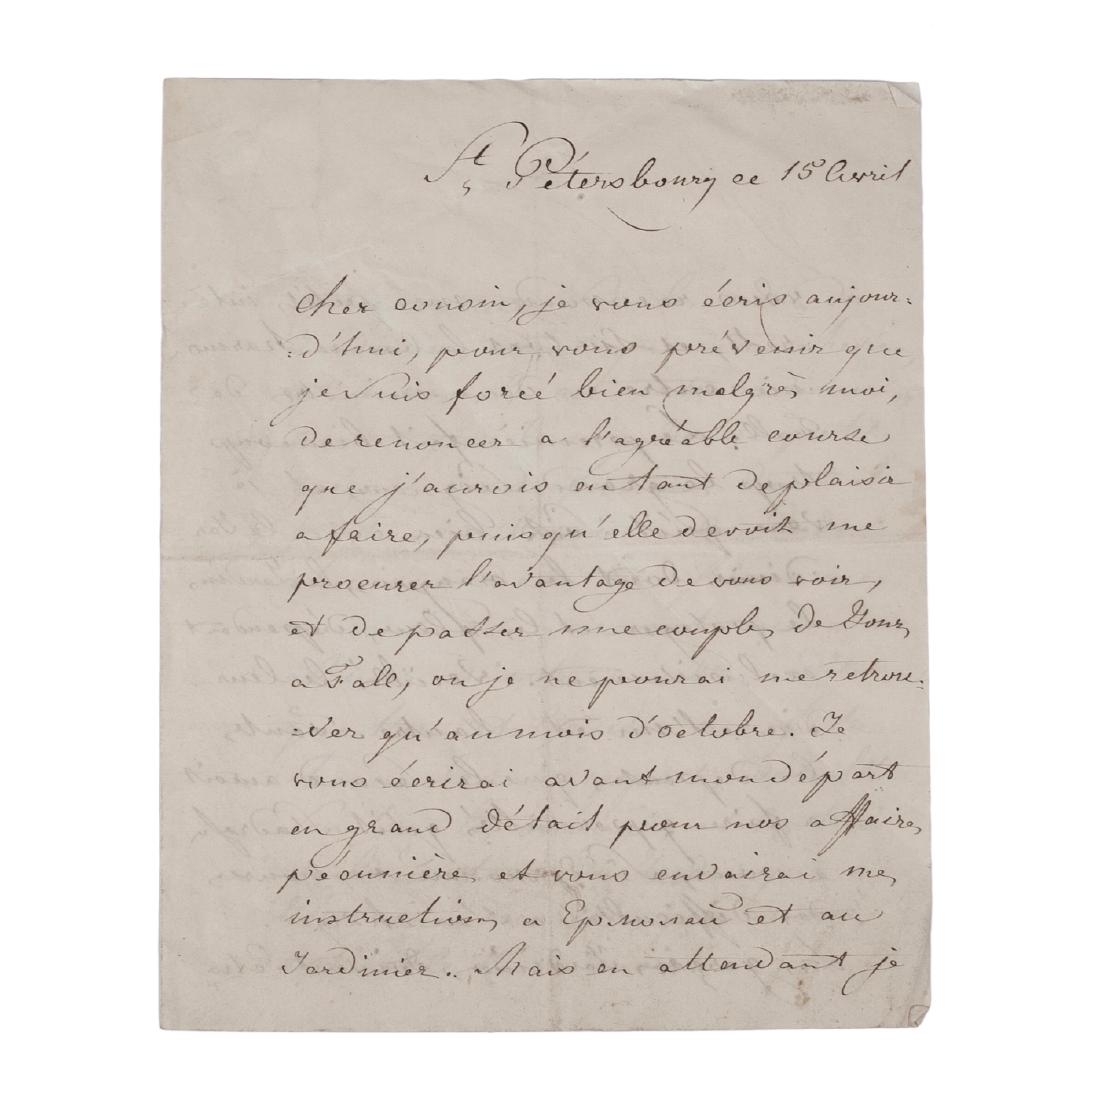 St Pétersbourg ce 15 Avril
Cher cousin, je vous écris aujour=
=d'hui, pour vous prévenir que
je suis forcé bien malgrès moi,
de renoncer a l'agréable course
que j'aurois eu tant de plaisir
a faire, puis qu'elle devoit me
procurer l'avantage de vous voir,
et de passer une couple de Jours
a Fall, ou je ne pourai me retrou=
=ver qu'au mois d'octobre. Je
vous écrirai avant mon départ
en grand détail pour nos affaires
pécunière et vous envairai mes
instructions a Ермолай et au
Jardinier. Mais en attendant je